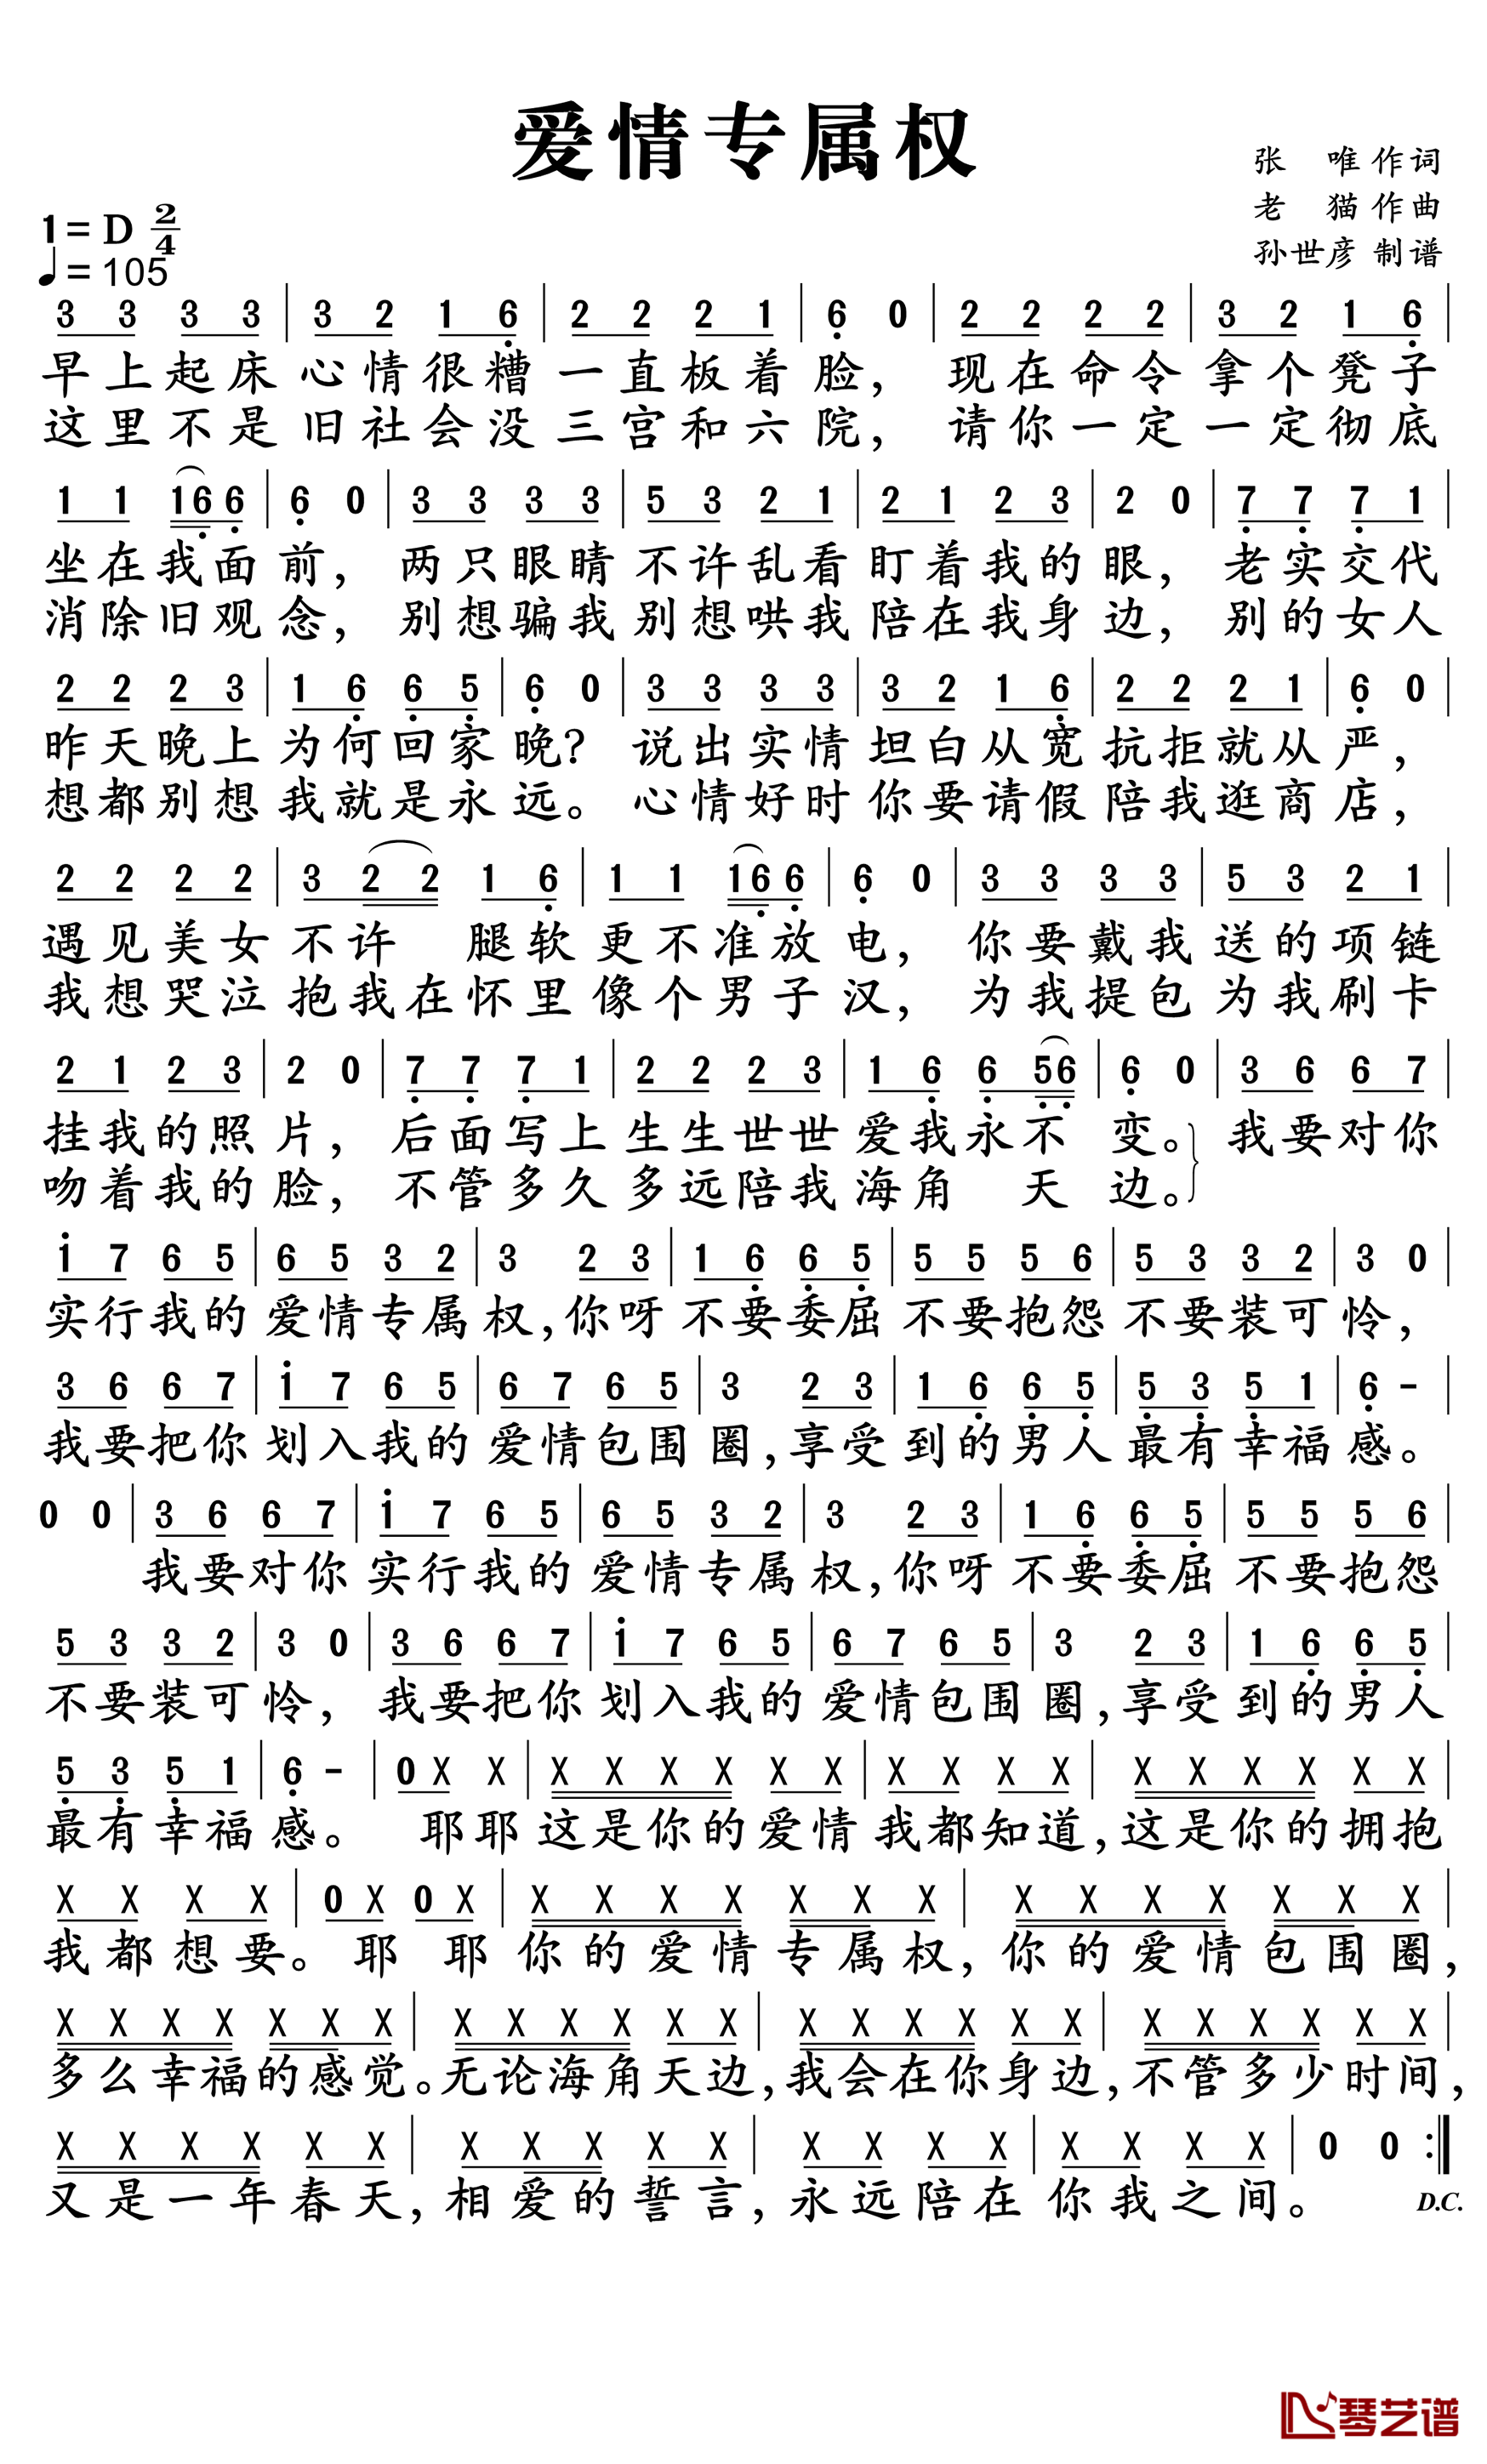 爱情专属权
张 唯 作词
老 猫 作曲
孙世彦 制谱
1= D 2/4
♩= 105
3 3 3 3 | 3 2 1 6̣ | 2 2 2 1 | 6̣ 0 | 2 2 2 2 | 3 2 1 6̣ |
早上起床 心情很糟 一直板着 脸， 现在命令 拿个凳子
这里不是 旧社会没 三宫和六 院， 请你一定 一定彻底
1 1 1 6̣ 6̣ | 6̣ 0 | 3 3 3 3 | 5 3 2 1 | 2 1 2 3 | 2 0 | 7̣ 7̣ 7̣ 1 |
坐在我面 前， 两只眼睛 不许乱看 盯着我的 眼， 老实交代
消除旧观 念， 别想骗我 别想哄我 陪在我身 边， 别的女人
2 2 2 3 | 1 6̣ 6̣ 5̣ | 6̣ 0 | 3 3 3 3 | 3 2 1 6̣ | 2 2 2 1 | 6̣ 0 |
昨天晚上 为何回家 晚? 说出实情 坦白从宽 抗拒就从 严，
想都别想 我就是永 远。 心情好时 你要请假 陪我逛商 店，
2 2 2 2 | 3 2 2 1 6̣ | 1 1 1 6̣ 6̣ | 6̣ 0 | 3 3 3 3 | 5 3 2 1 |
遇见美女 不许 腿软 更不准放 电， 你要戴我 送的项链
我想哭泣 抱我在怀里 像个男子 汉， 为我提包 为我刷卡
2 1 2 3 | 2 0 | 7̣ 7̣ 7̣ 1 | 2 2 2 3 | 1 6̣ 6̣ 5̣ 6̣ | 6̣ 0 | 3 6 6 7 |
挂我的照 片， 后面写上 生生世世 爱我永不 变。 我要对你
吻着我的 脸， 不管多久 多远陪我 海角 天 边。
1̇ 7 6 5 | 6 5 3 2 | 3 2 3 | 1 6̣ 6̣ 5̣ | 5 5 5 6 | 5 3 3 2 | 3 0 |
实行我的 爱情专属 权，你呀 不要委屈 不要抱怨 不要装可 怜，
3 6 6 7 | 1̇ 7 6 5 | 6 7 6 5 | 3 2 3 | 1 6̣ 6̣ 5̣ | 5̣ 3̣ 5̣ 1 | 6̣ - |
我要把你 划入我的 爱情包围 圈，享受 到的男人 最有幸福 感。
0 0 | 3 6 6 7 | 1̇ 7 6 5 | 6 5 3 2 | 3 2 3 | 1 6̣ 6̣ 5̣ | 5 5 5 6 |
我要对你 实行我的 爱情专属 权，你呀 不要委屈 不要抱怨
5 3 3 2 | 3 0 | 3 6 6 7 | 1̇ 7 6 5 | 6 7 6 5 | 3 2 3 | 1 6̣ 6̣ 5̣ |
不要装可 怜， 我要把你 划入我的 爱情包围 圈，享受 到的男人
5̣ 3̣ 5̣ 1 | 6̣ - | 0 X X | X X X X X X | X X X X | X X X X X X |
最有幸福 感。 耶耶 这是你的爱情 我都知道，这是你的拥抱
X X X X | 0 X 0 X | X X X X X X X | X X X X X X X |
我都想要。 耶 耶 你的爱情专属权，你的爱情包围圈，
X X X X X X X | X X X X X X | X X X X X X | X X X X X X |
多么幸福的感觉。无论海角天边，我会在你身边，不管多少时间，
X X X X X X | X X X X X | X X X X | X X X X | 0 0 :|
又是一年春天，相爱的誓言，永远陪在 你我之间。 D.C.
琴艺谱